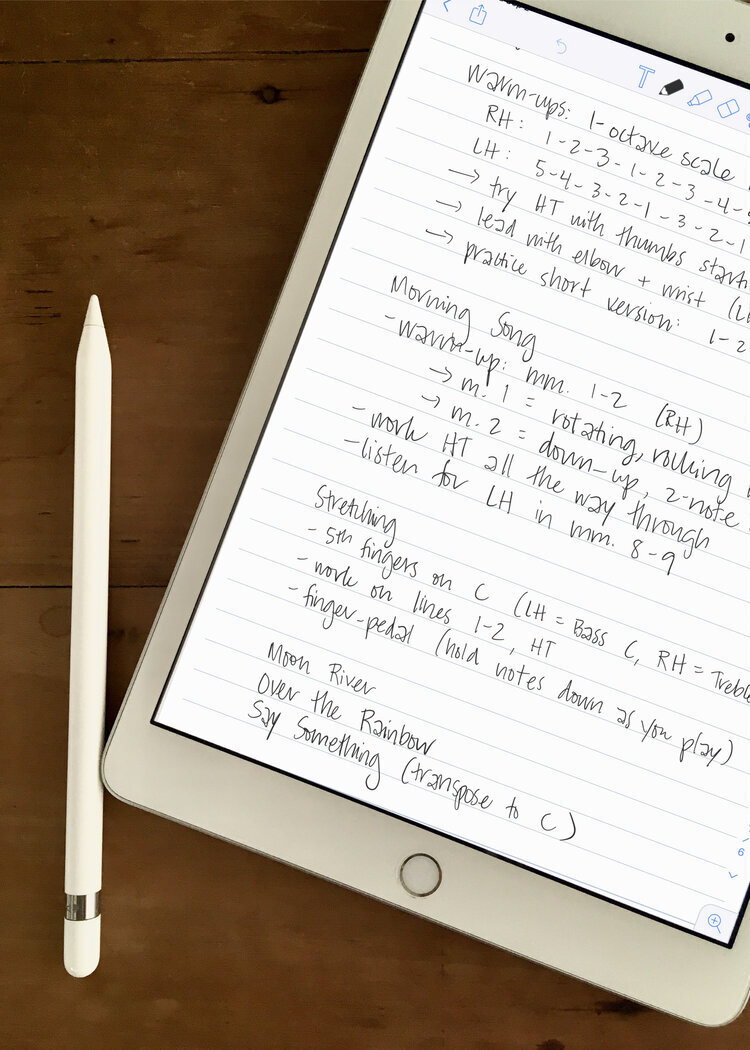 Warm-ups: 1-octave scale
RH: 1-2-3-1-2-3-4-5
LH: 5-4-3-2-1-3-2-1
→ try HT with thumbs starti
→ lead with elbow + wrist (LH
→ practice short version: 1-2
Morning Song
-warm-up: mm. 1-2 (RH)
→ m. 1 = rotating, rolling
→ m. 2 = down-up, 2-note
-work HT all the way through
-listen for LH in mm. 8-9
Stretching
- 5th fingers on C (LH = Bass C, RH = Treble
- work on lines 1-2, HT
- finger-pedal (hold notes down as you play)
Moon River
Over the Rainbow
Say Something (transpose to C)
6